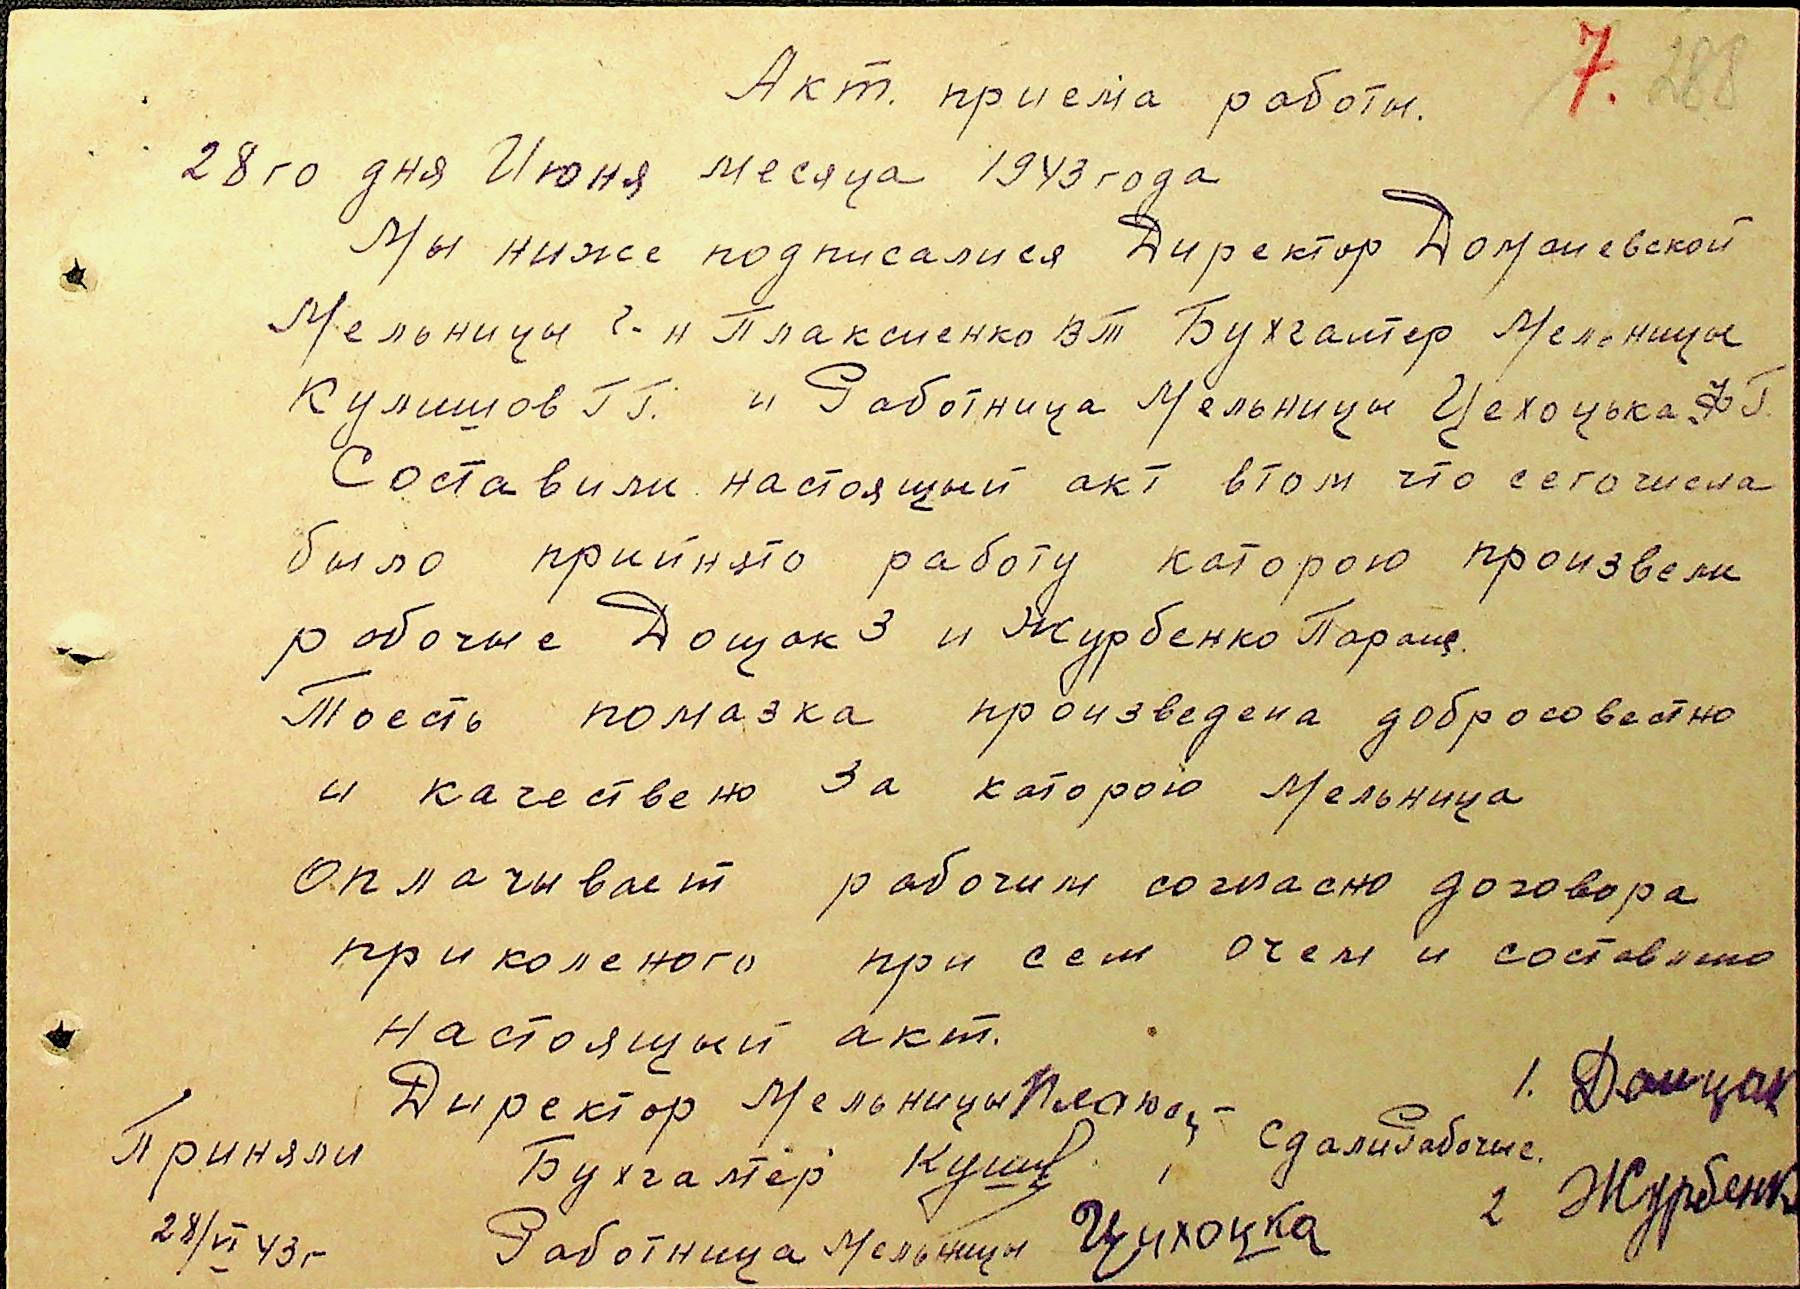 7. 288
Акт. приема работы.
28го дня Июня месяца 1943 года
Мы ниже подписалися Директор Доманевской
Мельницы г-н Плаксиенко ВТ Бухгалтер Мельницы
Кулишов ГГ. и Работница Мельницы Цехоцька Г.
Составили настоящый акт втом что сегочисла
было прийнято работу каторою произвели
робочые Дощак З и Журбенко Параще.
Тоесть помазка произведена добросовестно
и качествено За каторою Мельница
Оплачывает рабочим согласно договора
приколеного при сем очем и составлено
настоящый акт.
Директор Мельницы
1. Дощак
Приняли
Сдали Рабочые.
Бухгалтер
2 Журбенк
28/VI 43г
Работница Мельницы Цихоцка